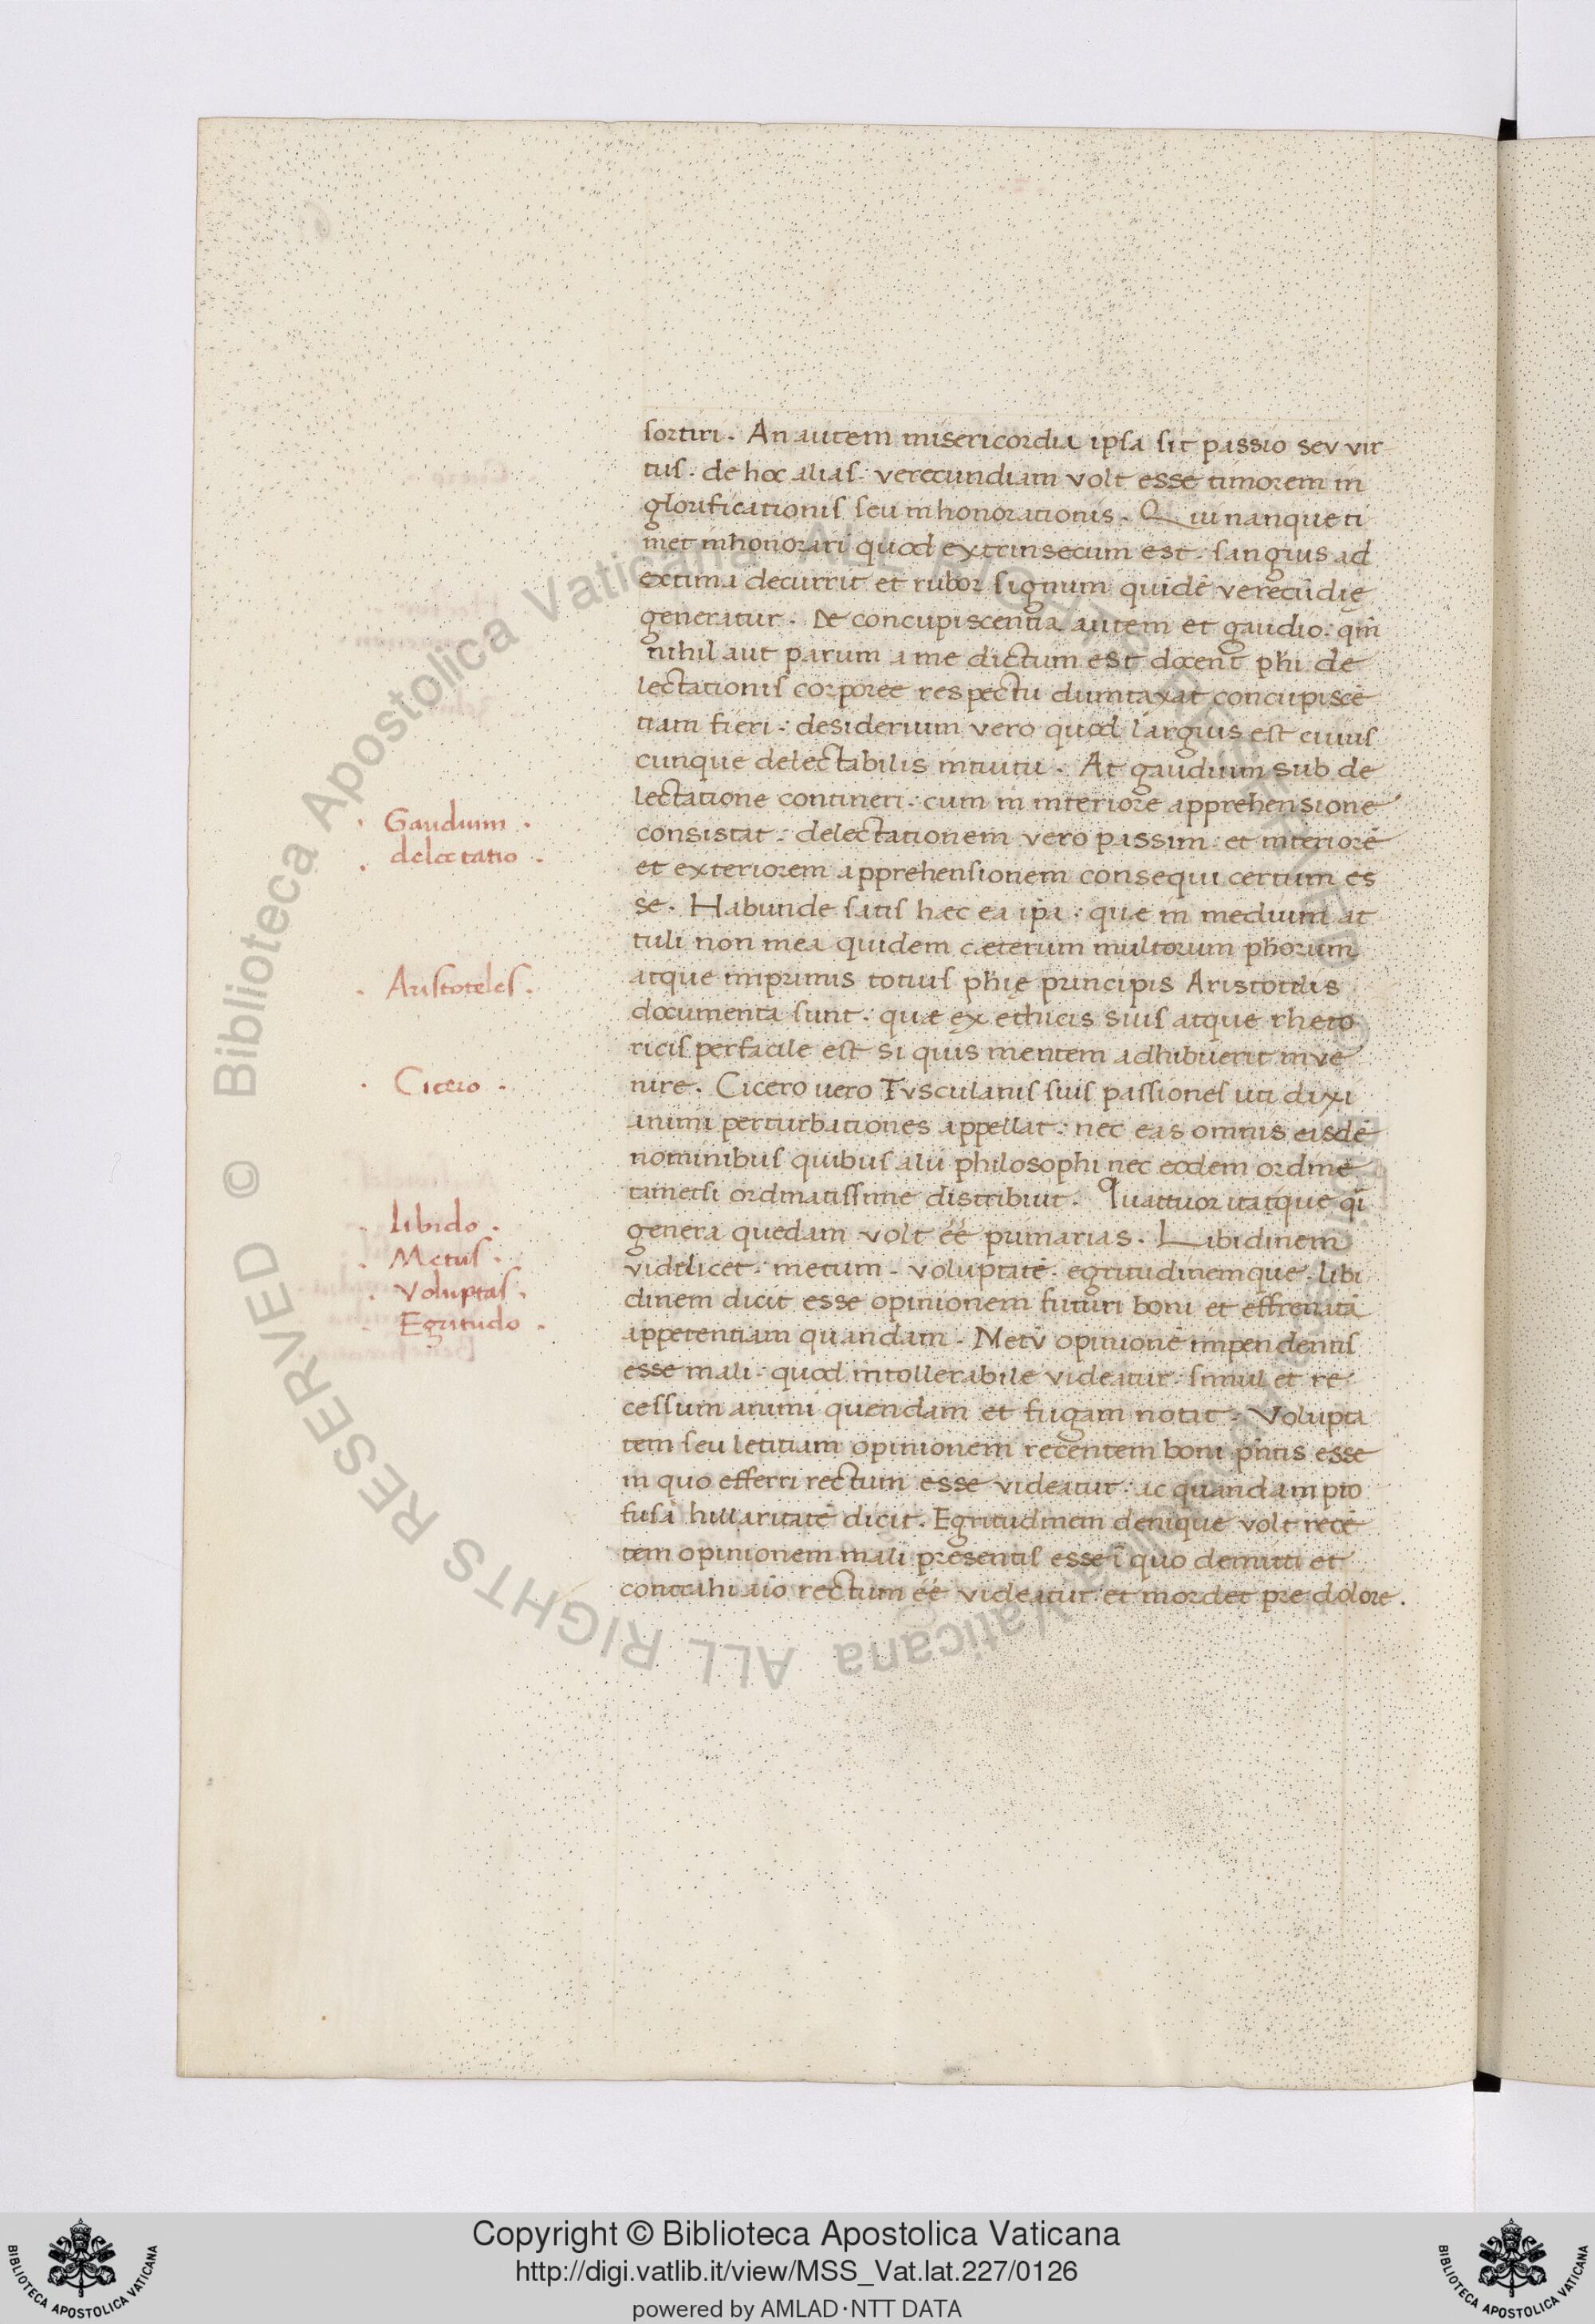 sortiri. An autem misericordia ipsa sit passio seu vir
tus. de hoc alias: verecundiam volt esse timorem in
glorificationis seu inhonorationis. Qui nanque ti
met inhonorari quod extrinsecum est: sangius ad
extima decurrit et rubor signum quidē verecūdię
generatur. De concupiscentia autem et gaudio: qm̄
nihil aut parum a me dictum est docent phi de
lectationis corporee respectu dumtaxat concupiscē
tiam fieri: desiderium vero quod largius est cuius
cunque delectabilis intuitu. At gaudium sub de
lectatione contineri: cum in interiore apprehensione
Gaudium.
delectatio.
consistat: delectationem vero passim: et interiorē
et exteriorem apprehensionem consequi certum es
se. Habunde satis hæc ea ipa: quæ in medium at
tuli non mea quidem cæterum multorum phorum
Aristoteles.
atque imprimis totius phię principis Aristotilis
documenta sunt: quæ ex ethicis suis atque rheto
ricis perfacile est si quis mentem adhibuerit inve
Cicero.
nire. Cicero uero Tusculanis suis passiones uti dixi
animi perturbationes appellat: nec eas omnis eisdē
nominibus quibus alii philosophi nec eodem ordine
tametsi ordinatissime distribuit. Quattuor itatque qi
Libido.
Metus.
Voluptas.
Egritudo.
genera quedam volt éé primarias. Libidinem
videlicet: metum. voluptatē. egritudinemque. libi
dinem dicit esse opinionem futuri boni et effrenatā
appetentiam quandam. Metū opinionē impendentis
esse mali: quod intollerabile videatur: simul et re
cessum animi quendam et fugam notat. Volupta
tem seu letitiam opinionem recentem boni pntis esse
in quo efferri rectum esse videatur: ac quandam pro
fusā hillaritatē dicit. Egritudinem denique volt recē
tem opinionem mali presentis esse ī quo demitti et
contrahi aīo rectum éé videatur: et mordet pre dolore.
Copyright © Biblioteca Apostolica Vaticana
http://digi.vatlib.it/view/MSS_Vat.lat.227/0126
powered by AMLAD·NTT DATA
BIBLIOTECA APOSTOLICA VATICANA
BIBLIOTECA APOSTOLICA VATICANA
© Biblioteca Apostolica Vaticana ALL RIGHTS RESERVED